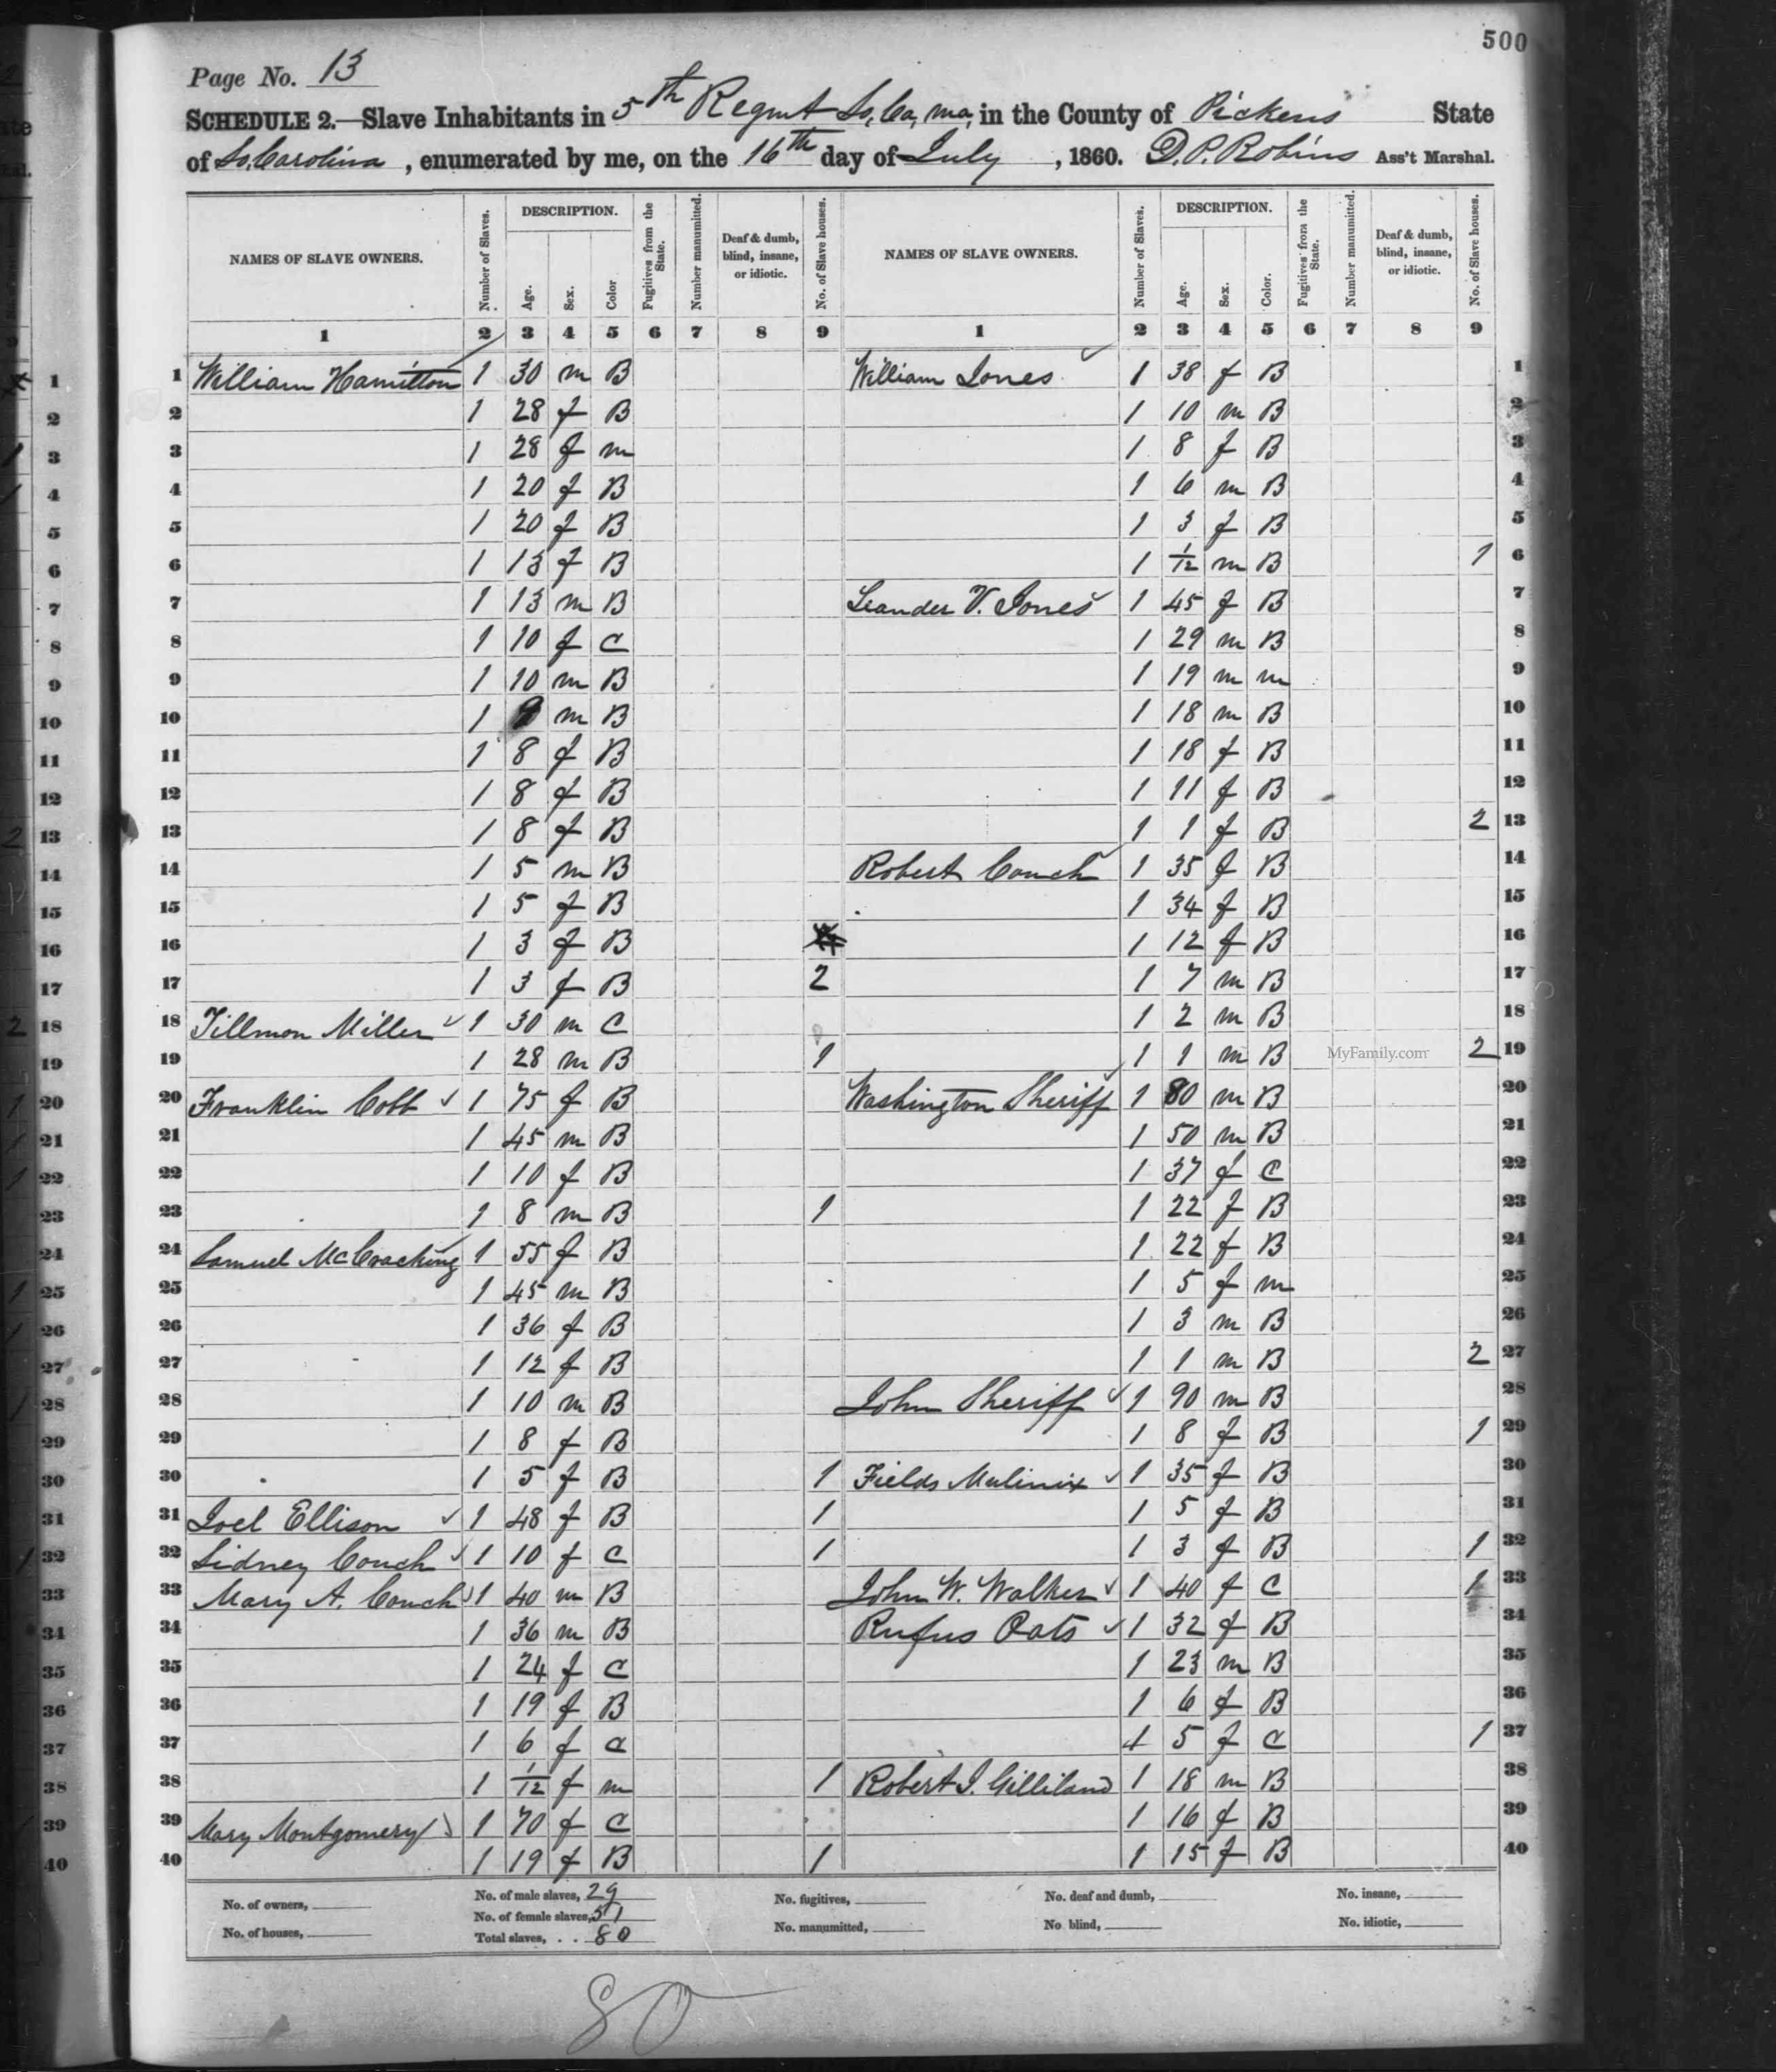 500
Page No. 13
SCHEDULE 2.—Slave Inhabitants in 5th Regmt So, Ca, ma, in the County of Pickens State
of So, Carolina, enumerated by me, on the 16th day of July, 1860. D. P. Robins Ass't Marshal.
NAMES OF SLAVE OWNERS. Number of Slaves. DESCRIPTION. Age. Sex. Color Fugitives from the State. Number manumitted. Deaf & dumb, blind, insane, or idiotic. No. of Slave houses. NAMES OF SLAVE OWNERS. Number of Slaves. DESCRIPTION. Age. Sex. Color. Fugitives from the State. Number manumitted. Deaf & dumb, blind, insane, or idiotic. No. of Slave houses.
1 2 3 4 5 6 7 8 9 1 2 3 4 5 6 7 8 9
1 William Hamilton 1 30 m B William Jones 1 38 f B 1
2 1 28 f B 1 10 m B 2
3 1 28 f m 1 8 f B 3
4 1 20 f B 1 6 m B 4
5 1 20 f B 1 3 f B 5
6 1 13 f B 1 1/12 m B 1 6
7 1 13 m B Leander V. Jones 1 45 f B 7
8 1 10 f C 1 29 m B 8
9 1 10 m B 1 19 m m 9
10 1 9 m B 1 18 m B 10
11 1 8 f B 1 18 f B 11
12 1 8 f B 1 11 f B 12
13 1 8 f B 1 1 f B 2 13
14 1 5 m B Robert Couch 1 35 f B 14
15 1 5 f B 1 34 f B 15
16 1 3 f B 1 12 f B 16
17 1 3 f B 2 1 7 m B 17
18 Tillmon Miller 1 30 m C 1 2 m B 18
19 1 28 m B 1 1 1 m B MyFamily.com 2 19
20 Franklin Cobb 1 75 f B Washington Sheriff 1 80 m B 20
21 1 45 m B 1 50 m B 21
22 1 10 f B 1 37 f C 22
23 1 8 m B 1 1 22 f B 23
24 Samuel McCracking 1 55 f B 1 22 f B 24
25 1 45 m B 1 5 f m 25
26 1 36 f B 1 3 m B 26
27 1 12 f B 1 1 m B 2 27
28 1 10 m B John Sheriff 1 90 m B 28
29 1 8 f B 1 8 f B 1 29
30 1 5 f B 1 Fields Mulinix 1 35 f B 30
31 Joel Ellison 1 48 f B 1 1 5 f B 31
32 Sidney Couch 1 10 f C 1 1 3 f B 1 32
33 Mary A. Couch 1 40 m B John W. Walker 1 40 f C 1 33
34 1 36 m B Rufus Oats 1 32 f B 34
35 1 24 f C 1 23 m B 35
36 1 19 f B 1 6 f B 36
37 1 6 f C 1 5 f C 1 37
38 1 1/12 f m 1 Robert J. Gilliland 1 18 m B 38
39 Mary Montgomery 1 70 f C 1 16 f B 39
40 1 19 f B 1 1 15 f B 40
No. of owners, No. of male slaves, 29 No. fugitives, No. deaf and dumb, No. insane,
No. of houses, No. of female slaves, 51 No. manumitted, No blind, No. idiotic,
Total slaves, . . 80
80